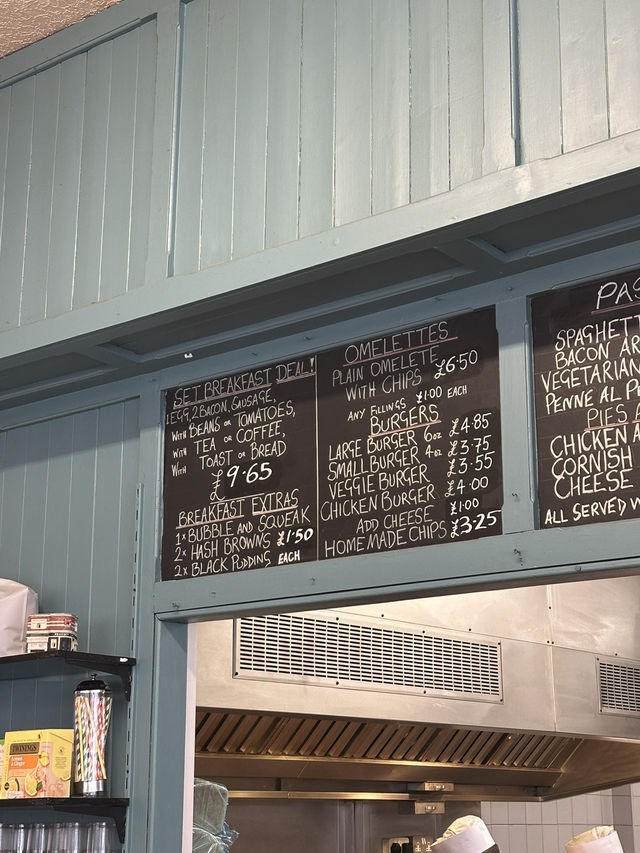 SET BREAKFAST DEAL!
1 EGG, 2 BACON, SAUSAGE,
WITH BEANS OR TOMATOES,
WITH TEA OR COFFEE,
WITH TOAST OR BREAD
£9.65
BREAKFAST EXTRAS
1x BUBBLE AND SQUEAK
2x HASH BROWNS £1.50
2x BLACK PUDDING EACH
OMELETTES
PLAIN OMELETE
WITH CHIPS £6.50
ANY FILLINGS £1.00 EACH
BURGERS
LARGE BURGER 6oz £4.85
SMALL BURGER 4oz £3.75
VEGGIE BURGER £3.55
CHICKEN BURGER £4.00
ADD CHEESE £1.00
HOMEMADE CHIPS £3.25
PAS
SPAGHETT
BACON AR
VEGETARIAN
PENNE AL P
PIES
CHICKEN A
CORNISH
CHEESE
ALL SERVED W
TWININGS
Lemon
& Ginger